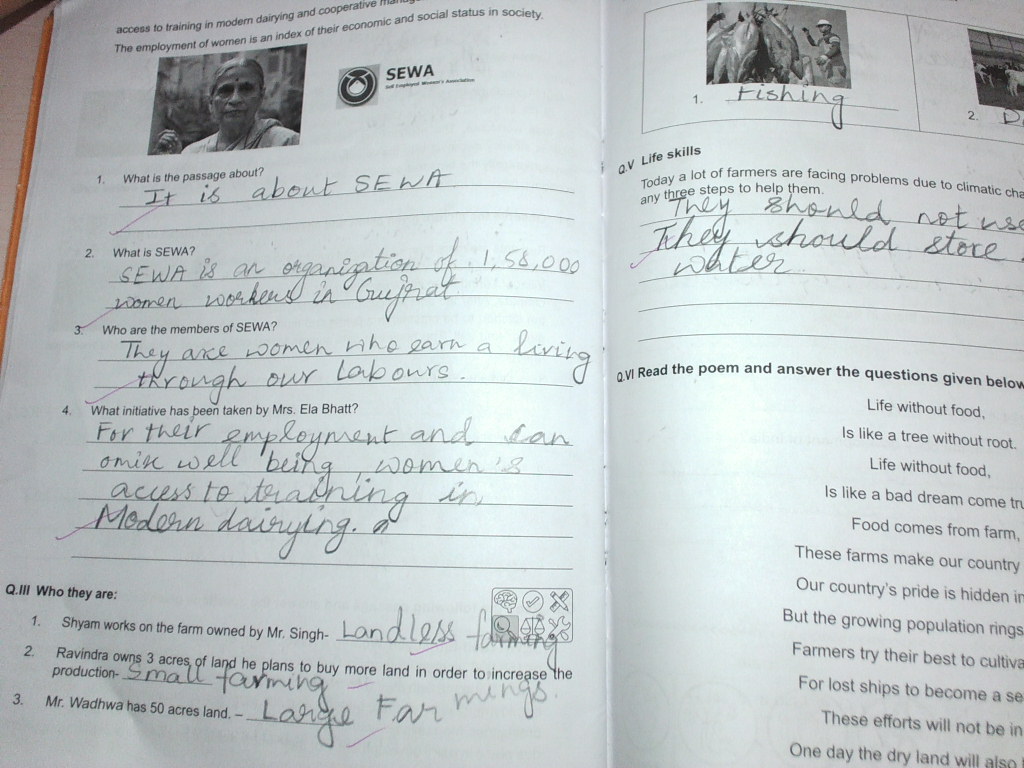 access to training in modern dairying and cooperative
The employment of women is an index of their economic and social status in society.
SEWA
Self Employed Women's Association
1. What is the passage about?
It is about SEWA
2. What is SEWA?
SEWA is an organization of 1,58,000
women workers in Gujrat
3. Who are the members of SEWA?
They are women who earn a living
through our Labours.
4. What initiative has been taken by Mrs. Ela Bhatt?
For their employment and
well being, women's
access to training in
Modern dairying.
Q.III Who they are:
1. Shyam works on the farm owned by Mr. Singh- Landless farming
2. Ravindra owns 3 acres of land he plans to buy more land in order to increase the
production- Small farming
3. Mr. Wadhwa has 50 acres land. – Large Farmings.
1. Fishing
2.
Q.V Life skills
Today a lot of farmers are facing problems due to climatic
any three steps to help them.
They should not use
They should store
water
Q.VI Read the poem and answer the questions given below
Life without food,
Is like a tree without root.
Life without food,
Is like a bad dream come
Food comes from farm,
These farms make our country
Our country's pride is hidden in
But the growing population rings
Farmers try their best to
For lost ships to become a
These efforts will not be in
One day the dry land will also